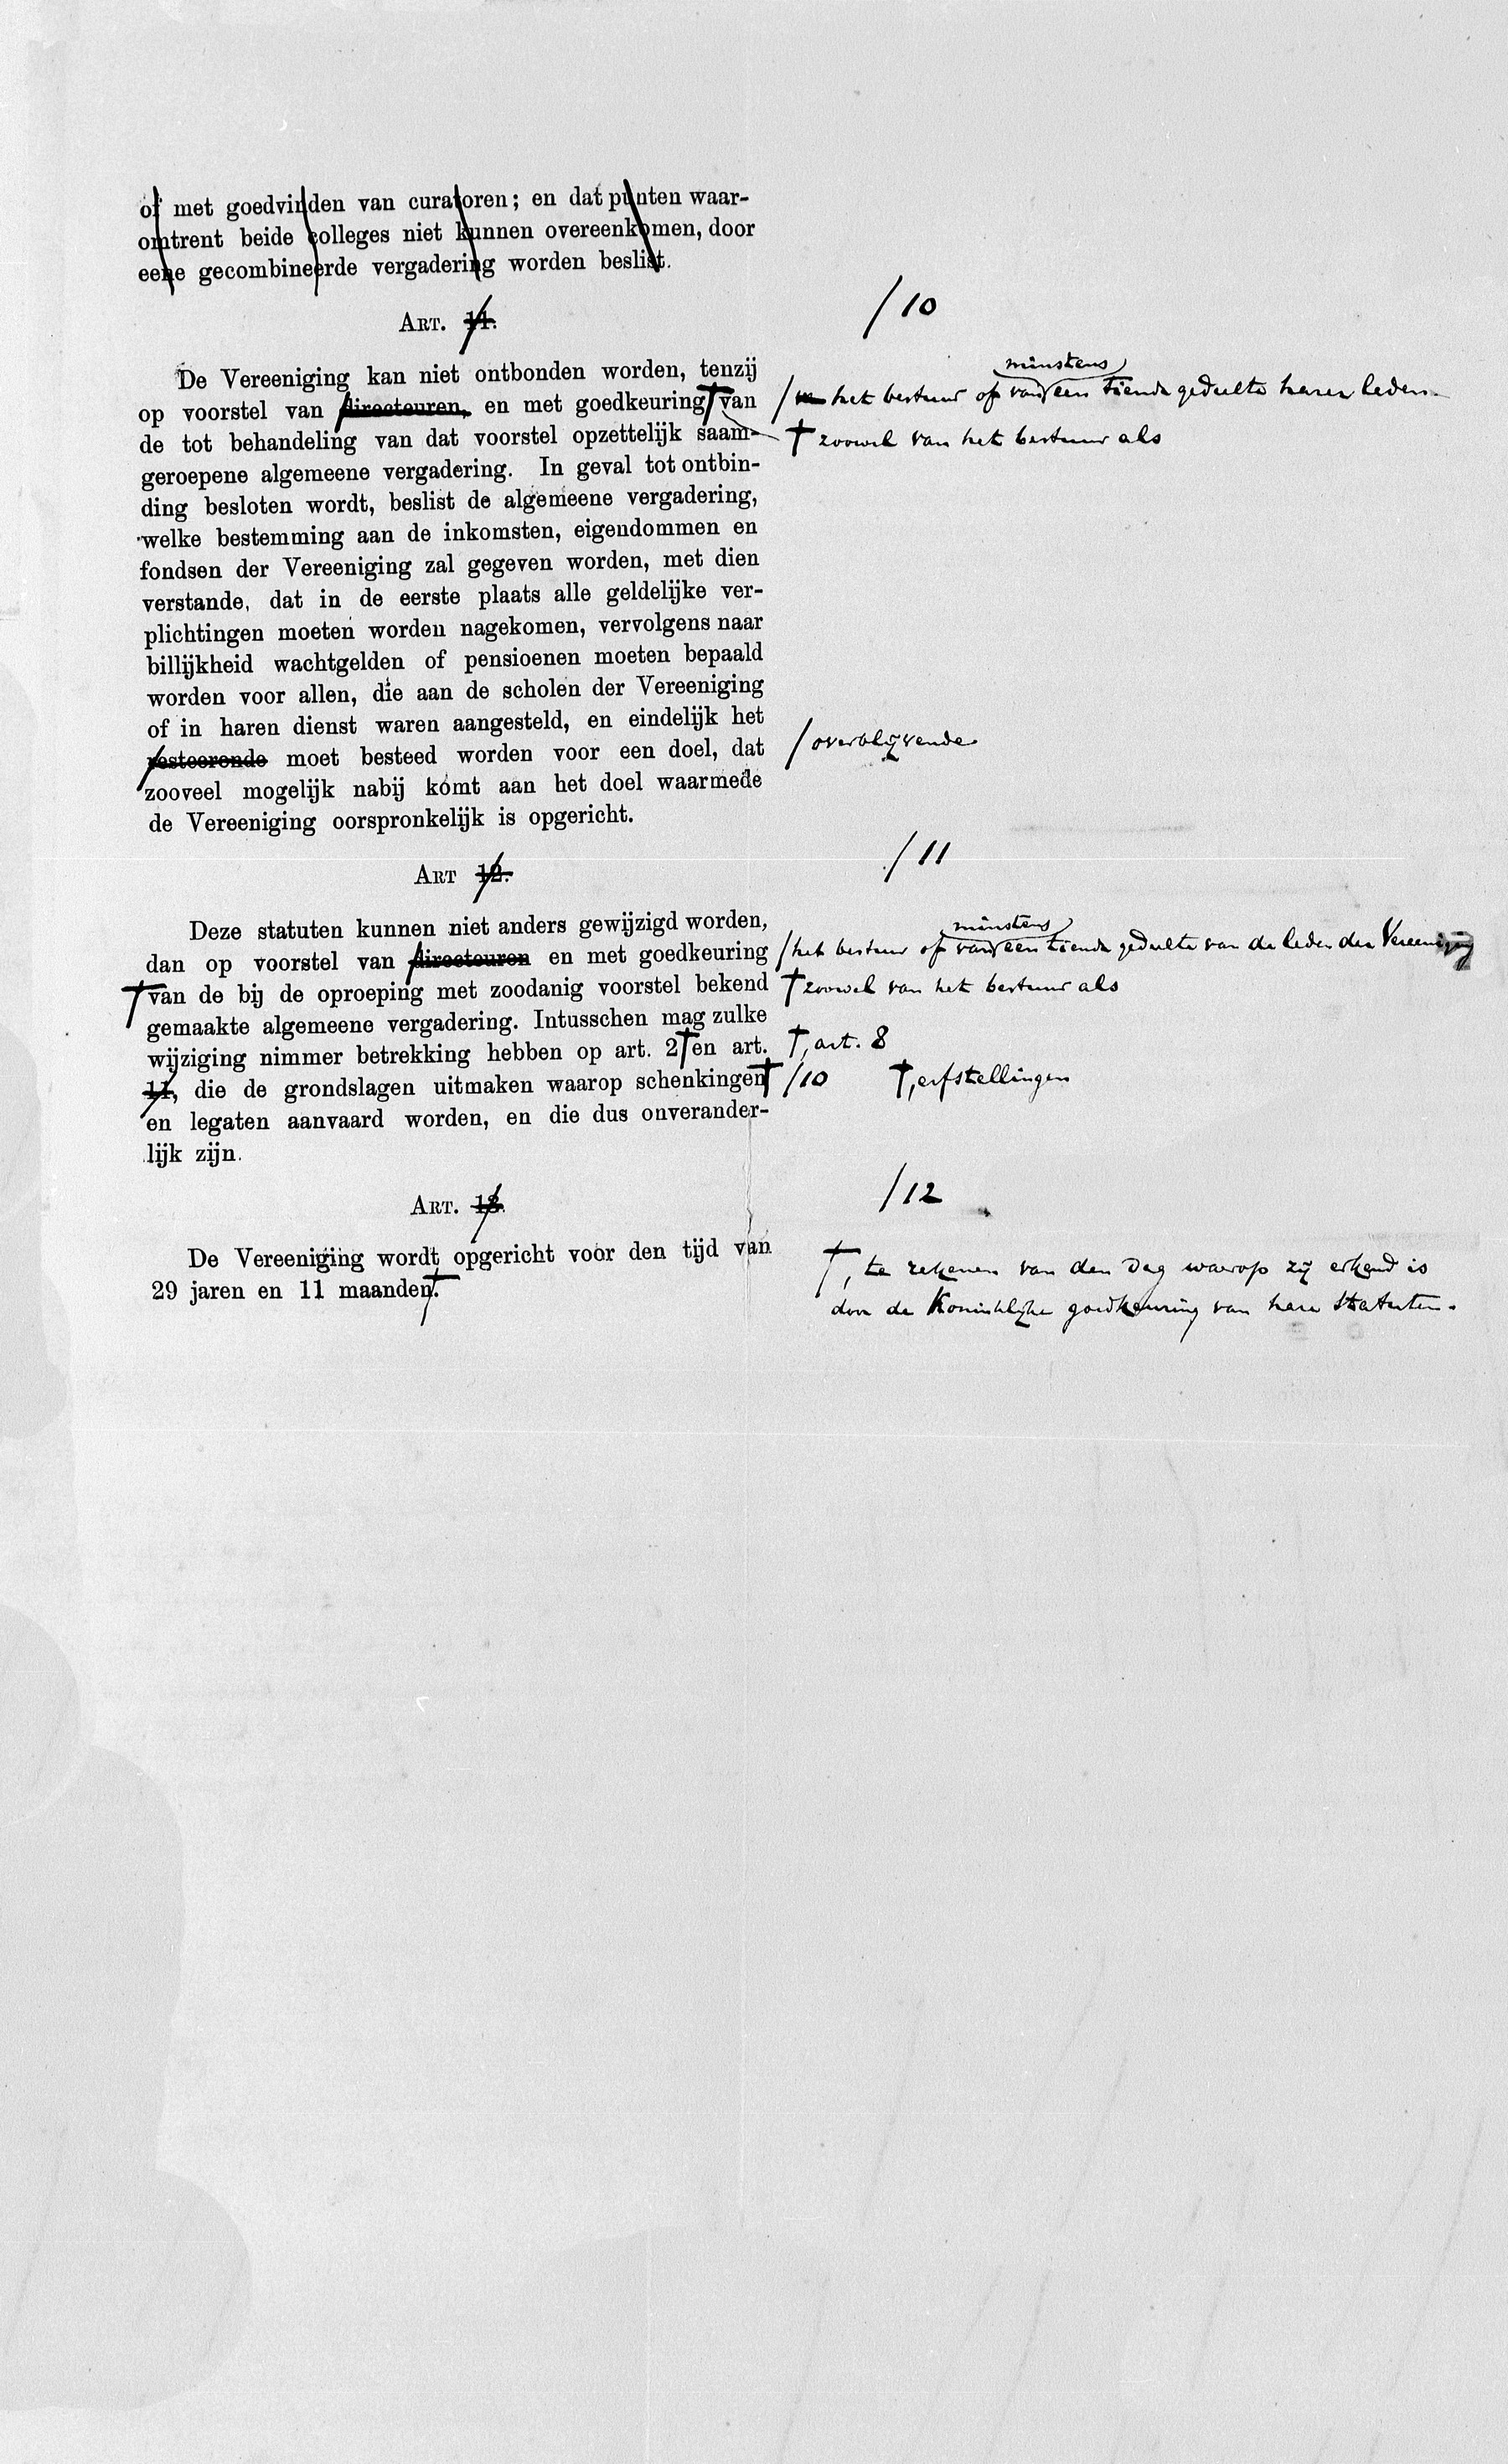 of met goedvinden van curatoren; en dat punten waar-
omtrent beide colleges niet kunnen overeenkomen, door
eene gecombineerde vergadering worden beslist.
ART. 11.
/ 10
De Vereeniging kan niet ontbonden worden, tenzij
op voorstel van directeuren, en met goedkeuring † van
de tot behandeling van dat voorstel opzettelijk saam-
geroepene algemeene vergadering. In geval tot ontbin-
ding besloten wordt, beslist de algemeene vergadering,
welke bestemming aan de inkomsten, eigendommen en
fondsen der Vereeniging zal gegeven worden, met dien
verstande, dat in de eerste plaats alle geldelijke ver-
plichtingen moeten worden nagekomen, vervolgens naar
billijkheid wachtgelden of pensioenen moeten bepaald
worden voor allen, die aan de scholen der Vereeniging
of in haren dienst waren aangesteld, en eindelijk het
resteerende moet besteed worden voor een doel, dat
zooveel mogelijk nabij komt aan het doel waarmede
de Vereeniging oorspronkelijk is opgericht.
minstens
/ het bestuur of van een tiende gedeelte harer leden
† zoowel van het bestuur als
/ overblijvende
ART 12.
/ 11
Deze statuten kunnen niet anders gewijzigd worden,
dan op voorstel van directeuren en met goedkeuring
† van de bij de oproeping met zoodanig voorstel bekend
gemaakte algemeene vergadering. Intusschen mag zulke
wijziging nimmer betrekking hebben op art. 2 † en art.
11, die de grondslagen uitmaken waarop schenkingen †
en legaten aanvaard worden, en die dus onverander-
lijk zijn.
minstens
/ het bestuur of van een tiende gedeelte van de leden der Vereeniging
† zoowel van het bestuur als
†, art. 8
/ 10 †, erfstellingen
ART. 13.
/ 12
De Vereeniging wordt opgericht voor den tijd van
29 jaren en 11 maanden †.
†, te rekenen van den dag waarop zij erkend is
door de Koninklijke goedkeuring van hare Statuten.